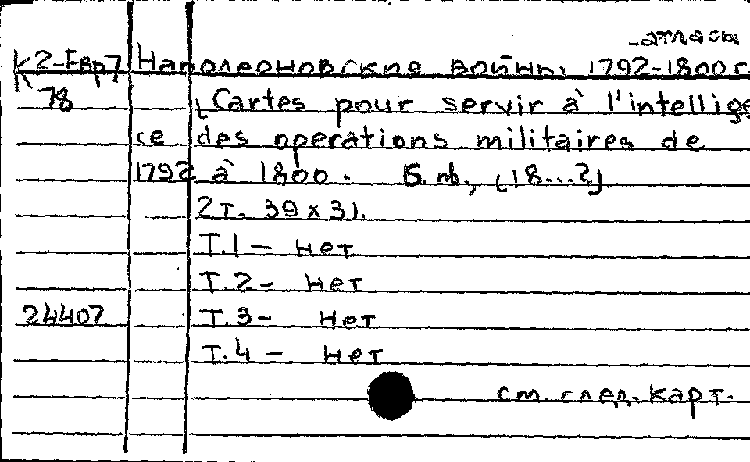 -атласы
К2-Евр7 Наполеоновские войны 1792-1800 г
К
78 [Cartes pour servir à l'intellige
ce des operations militaires de
1792 à 1800. Б. м., [18...?]
2т. 39 x 31.
Т.1 - нет
Т.2 - нет
24407 Т.3 - нет
Т.4 - нет
см. след. карт.